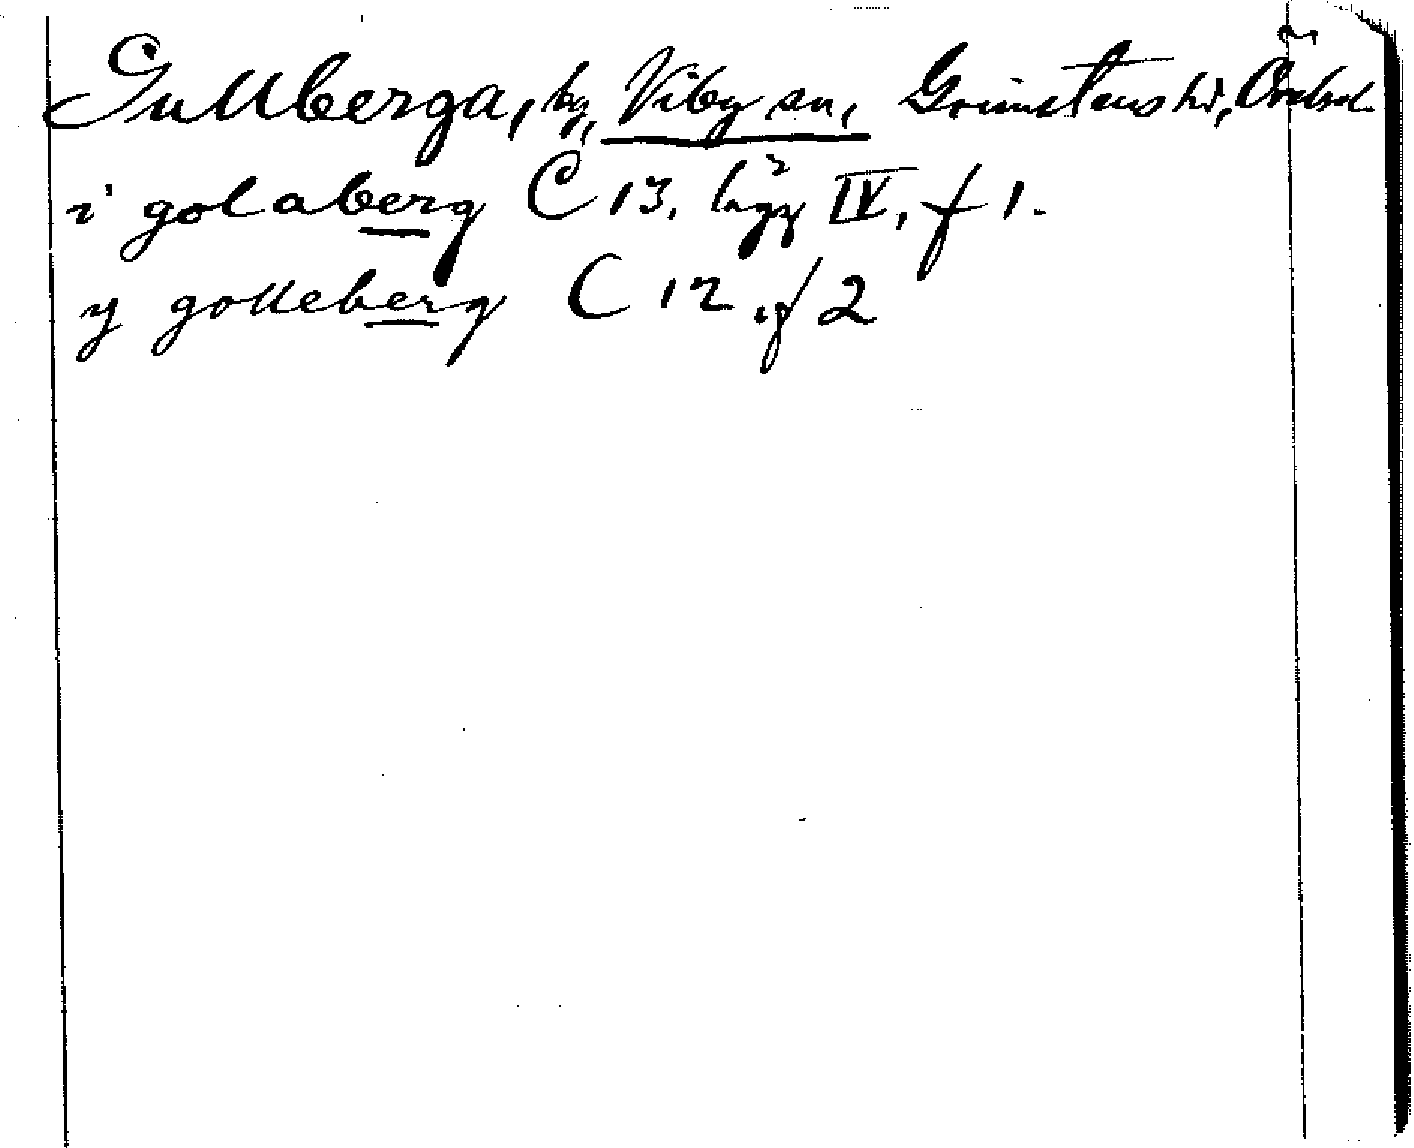 Gullberga, by, Viby sn, Grimstens hd, Örebro l.
i golaberg C 13. lägg IV, f 1.
y golleberg C 12 . f 2